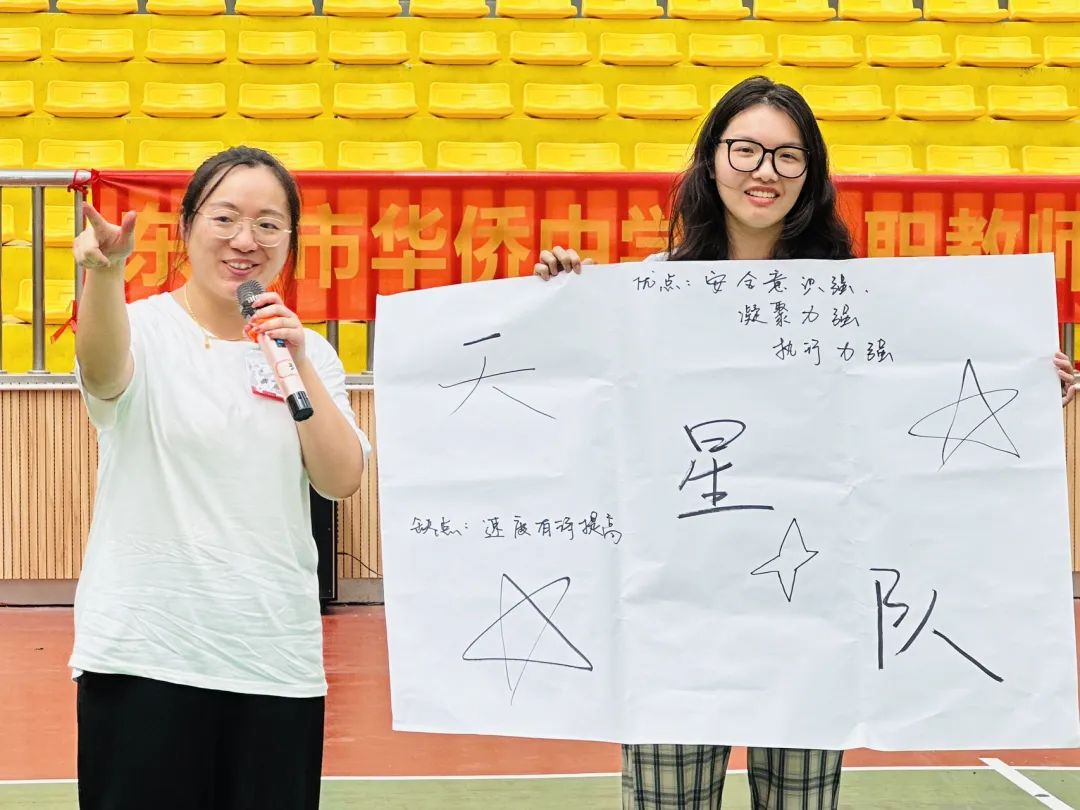 东 市华侨中学 职教师
优点：安全意识强、
凝聚力强
执行力强
天
星
缺点：速度有待提高
队